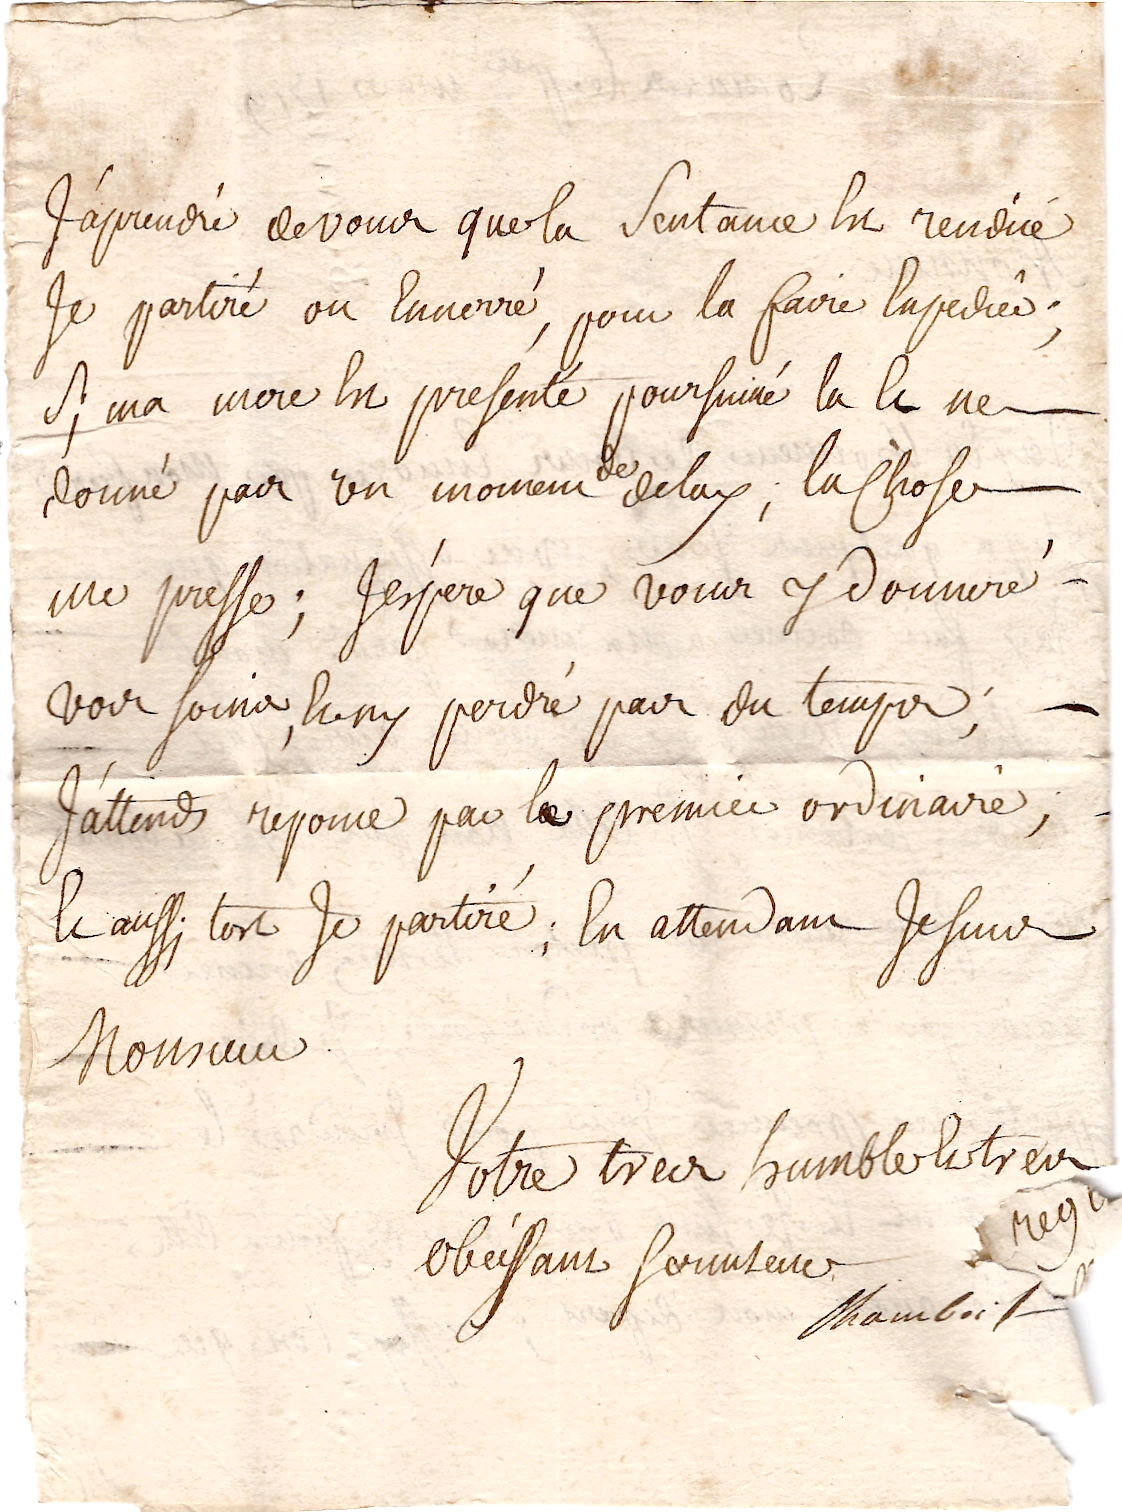 J'aprendré de vous que la Sentance est rendué
Je partiré ou Enverré, pour la faire Expediér;
Si ma mere Est presenté poursuivé la Et ne
donné pas un moment de delay; la Chose
me presse; J'espere que vous y donneré
vos soins, Et ny perdré pas du temps;
J'attends reponse par le premier ordinaire;
Et aussi tost Je partiré; En attendant Je suis
Monsieur
Votre tres humble Et tres
obeissant serviteur
reg
Chamboist